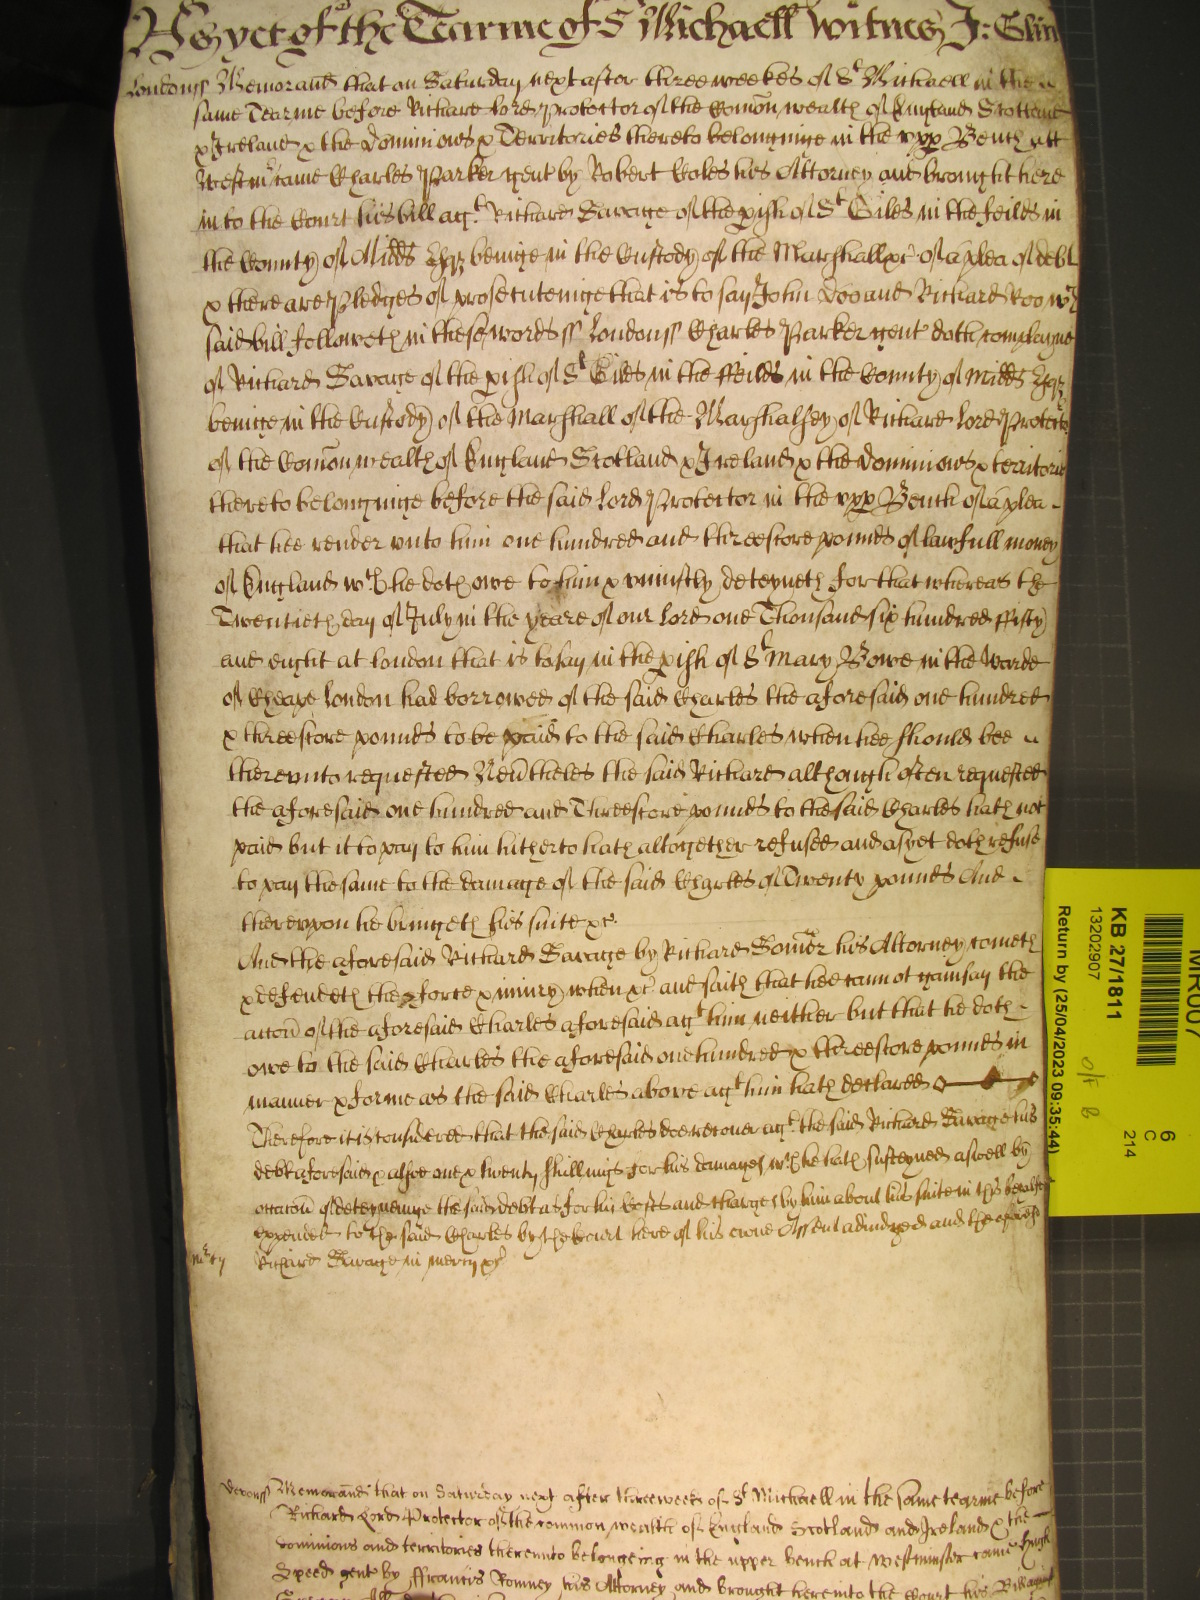 As yet of the Tearme of St Michaell Witnes J: Glin
Londonss Memorand that on Saturday next after three weekes of St Michaell in the
same Tearme before Richard Lord Protector of the Comon wealth of England Scotland
& Ireland & the Dominions & Territories thereto belonginge in the vpp Bench att
Westmr came Charles Parker gent by Robert Coles his Attorney and brought here
in to the Court his bill agt Richard Savage of the pish of St Giles in the feilds in
the County of Midds Esqr beinge in the Custody of the Marshall &c of a plea of debt
& there are Pledges of prosecuteinge that is to say John Doo and Richard Roo wch
said bill followeth in these words ss Londonss Charles Parker gent doth complayne
of Richard Savage of the pish of St Giles in the ffeilds in the County of Midds Esqr
beinge in the Custody of the Marshall of the Marshalsey of Richard Lord Protector
of the Comon wealth of England Scotland & Ireland & the Dominions & territories
thereto belonginge before the said Lord Protector in the vpp Bench of a plea
that hee render vnto him one hundred and threescore pounds of lawfull money
of England wch he doth owe to him & vniustly deteyneth for that whereas the
Twentieth day of July in the yeare of our Lord one Thousand six hundred ffifty
and eught at London that is to say in the pish of St Mary Bowe in the Warde
of Cheape London had borrowed of the said Charles the aforesaid one hundred
& threescore pounds to be paid to the said Charles when hee should bee
therevnto requested Neutheles the said Richard although often requested
the aforesaid one hundred and Threescore pounds to the said Charles hath not
paid but it to pay to him hitherto hath altogether refused and as yet doth refuse
to pay the same to the damage of the said Charles of Twenty pounds And
therevpon he bringeth his suite &c
And the aforesaid Richard Savage by Richard Somer his Attorney cometh
& defendeth the force & iniury when &c and saith that hee cannot gainsay the
accon of the aforesaid Charles aforesaid agt him neither but that he doth
owe to the said Charles the aforesaid one hundred & threescore pounds in
manner & forme as the said Charles above agt him hath declared
Therefore it is considered that the said Charles doe recouer agt the said Richard Savage his
debt aforesaid & alsoe one & twenty shillings for his damages wch he hath susteyned aswell by
occacon of deteyneinge the said debt as for his Costs and charges by him about his suite in this behalfe
expended to the said Charles by the Court here of his owne Assent adiudged and the aforesd
mcy Richard Savage in mercy &c
Devonss Memorand that on Saturday next after three weeks of St Michaell in the same tearme before
Richard Lord Protector of the common wealth of England Scotland and Ireland & the
dominions and territories therevnto belongeing in the upper bench at Westminster came Hugh
Speed gent by ffrancis Romney his Attorney and brought here into the Court his Bill against
MR007
6
C
214
KB 27/1811
13202907
Return by (25/04/2023 09:35:44)